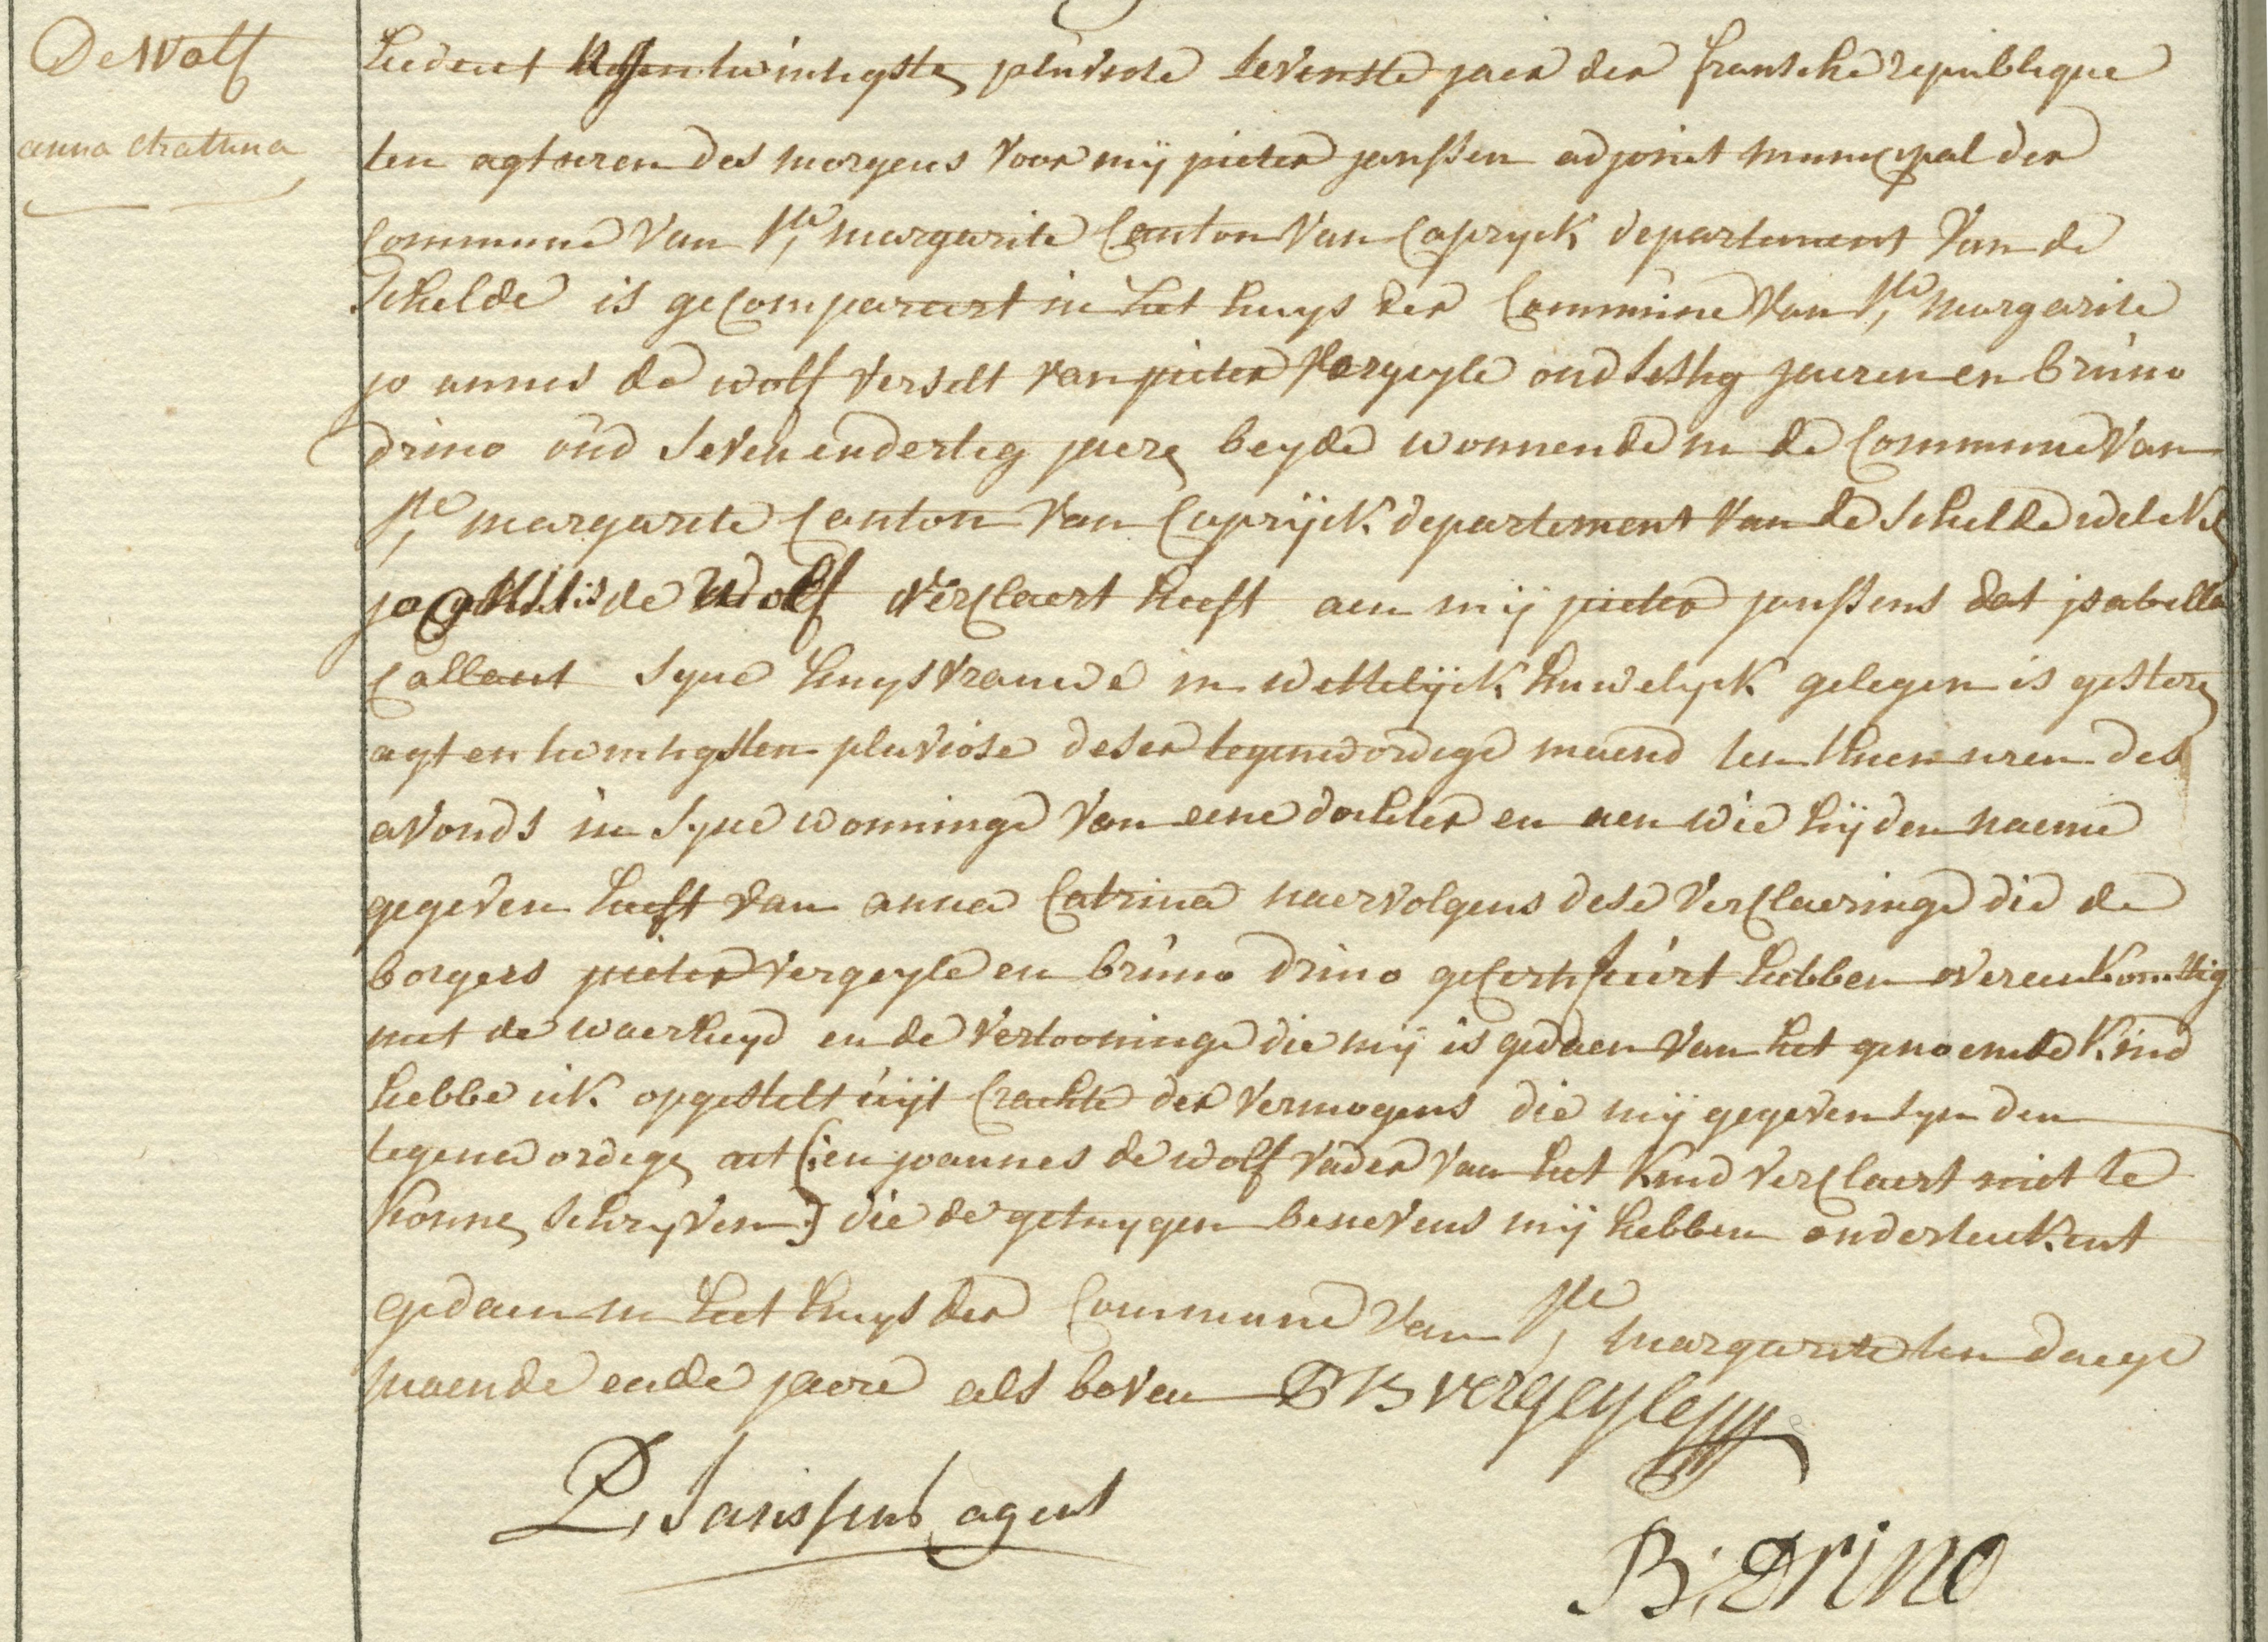 De Wolf
anna Chatrina
hedent negentwintigste pluviose sevenste jaer der fransche republique
ten agt uren des morgens voor mij pieter janssen adjoint municipal der
commune van Ste margarite Canton van Capryck departement van de
Schelde is gecompareert in het huys der Commune van Ste margarite
jo annes de wolf verselt van pieter Vergeyle oud sestig jaeren en bruno
drino oud seven en dertig jaere beyde wonnende in de Commune van
Ste margarite Canton van Caprijck departement van de Schelde welcke
de Wolf verclaert heeft aen mij pieter janssens dat jsabella
Callant syne huysvrauwe in wettelijck huwelyck gelegen is gestere
agt en twintigsten pluviose deser tegenwordige maend ten thien uren des
avonds in syne wonninge van eene dochter en aen wie hij den naeme
gegeven heeft van anna Catrina naervolgens dese verclaeringe die de
borgers pieter vergeyle en bruno drino gecertifieirt hebben overeenkomstig
met de waerheyd en de vertooninge die mij is gedaen van het genoemde kind
hebbe ik opgestelt uijt Crachte der vermogens die mij gegeven syn den
tegenwordige act (:en joannes de wolf vader van het kind verclaert niet te
konne schryven:) die de getuygen benevens mij hebben onderteekent
gedaen in het huys der Commune van Ste margarite ten daege
maende ende jaere als boven PB vergeyle
P, Janssens agent
B; Drino